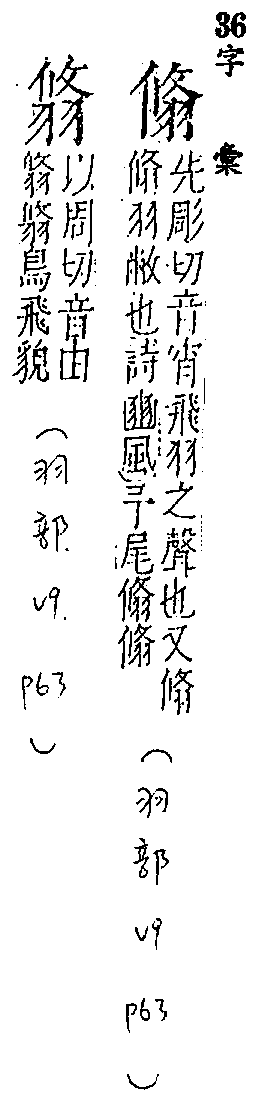 36
字彙
翛
先彫切音宵飛羽之聲也又翛
翛羽敝也詩豳風予尾翛翛
(羽部 v9 p63)
以周切音由
鳥飛貌
(羽部. v9. p63)